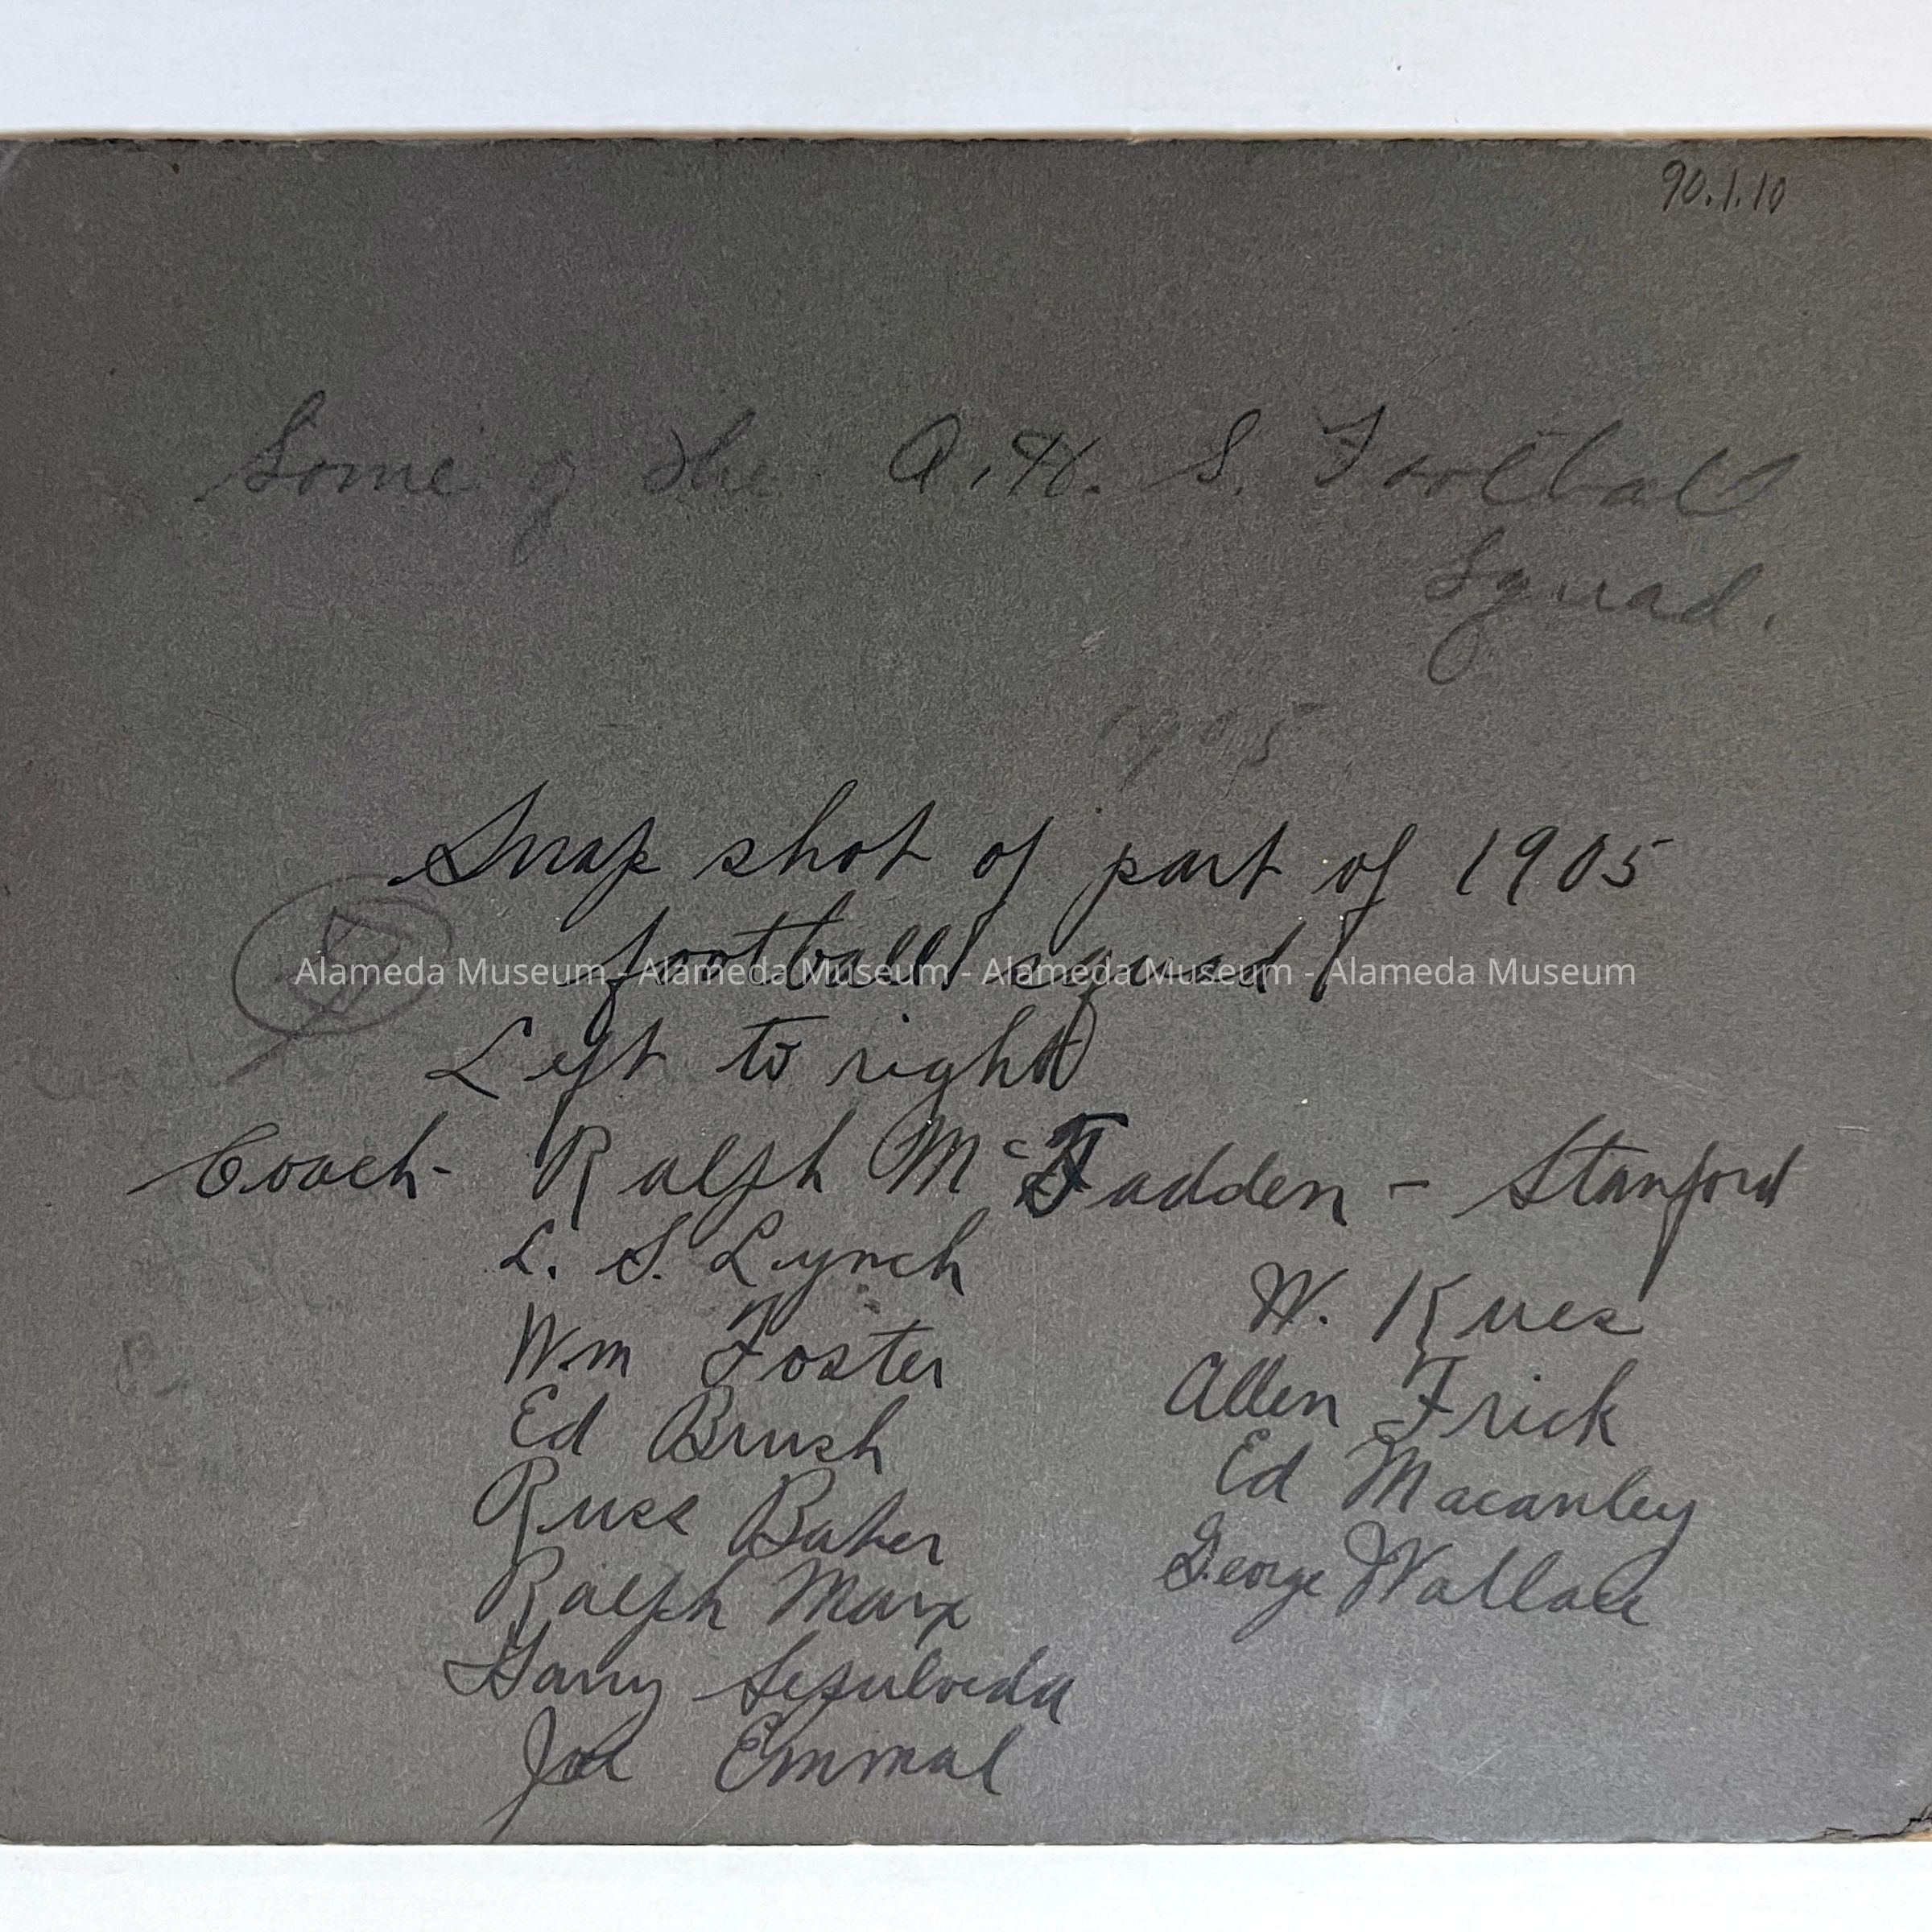 90.1.10
Some of the A. H. S. Football
Squad.
1905
Snap shot of part of 1905
football squad
Alameda Museum - Alameda Museum - Alameda Museum - Alameda Museum
Left to right
Coach - Ralph McFadden - Stanford
L. S. Lynch
Wm Foster
Ed Brush
Russ Baker
Ralph Marx
Harry Sepulveda
Joe Emmal
W. Kues
Allen Frick
Ed Macauley
George Wallace